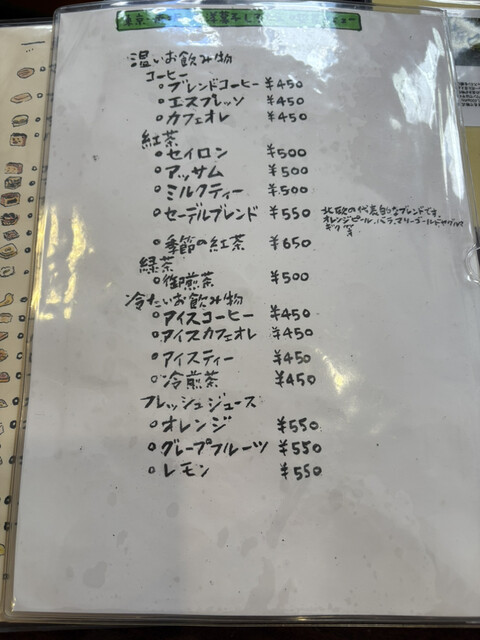 温いお飲み物
コーヒー
ブレンドコーヒー ¥450
エスプレッソ ¥450
カフェオレ ¥450
紅茶
セイロン ¥500
アッサム ¥500
ミルクティー ¥500
セーデルブレンド ¥550
北欧の代表的なブレンドです。
オレンジピール、バラ、マリーゴールド
季節の紅茶 ¥650
緑茶
御煎茶 ¥500
冷たいお飲み物
アイスコーヒー ¥450
アイスカフェオレ ¥450
アイスティー ¥450
冷煎茶 ¥450
フレッシュジュース
オレンジ ¥550
グレープフルーツ ¥550
レモン ¥550